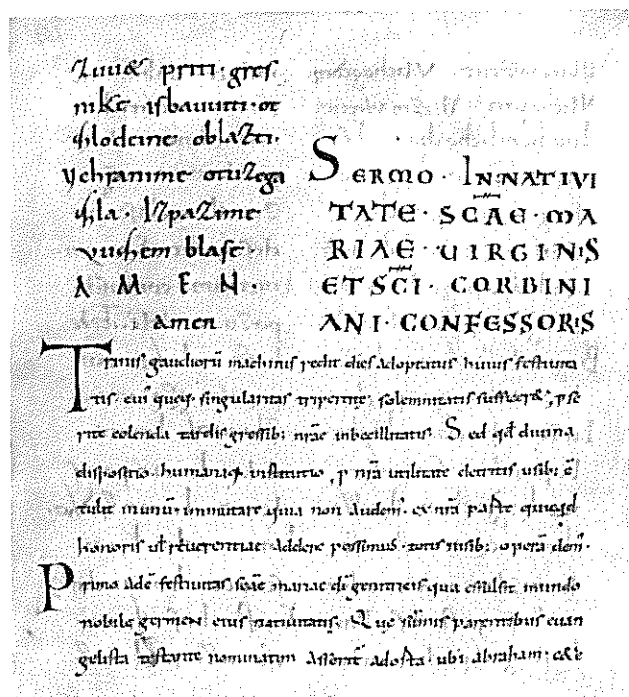 Zuu& priti gres
nike isbavuiti ot
zlodeine oblazti·
Vchranime otuzega
zla· Izpazime
vuzhem blase
A M E N·
amen
SERMO · IN NATIVI
TATE · SC̄AE · MA
RIAE · UIRGINIS
ET SC̄I · CORBINI
ANI · CONFESSORIS
Trinis gaudiorū machinis redit dies adoptatus huius festiuita
tis. cui' queq; singularitas tripertite solemnitatis suffic&, p se
rite colenda tardis gressib; nrae inbecillitatis. Sed qd diuina
dispositio humanaq; institutio, p nra utilitate decretis usib;
tulit munus inmutare quia non audem'. ex nra parte quicqd
honoris ul reuerentiae addere possimus. totis nisib; opera dem'.
Primo ade festiuitas scae mariae di genitricis qua effulsit mundo
nobile germen eius natiuitatis. Que summis parentibus euan
gelista testante nominatim ubi abraham;